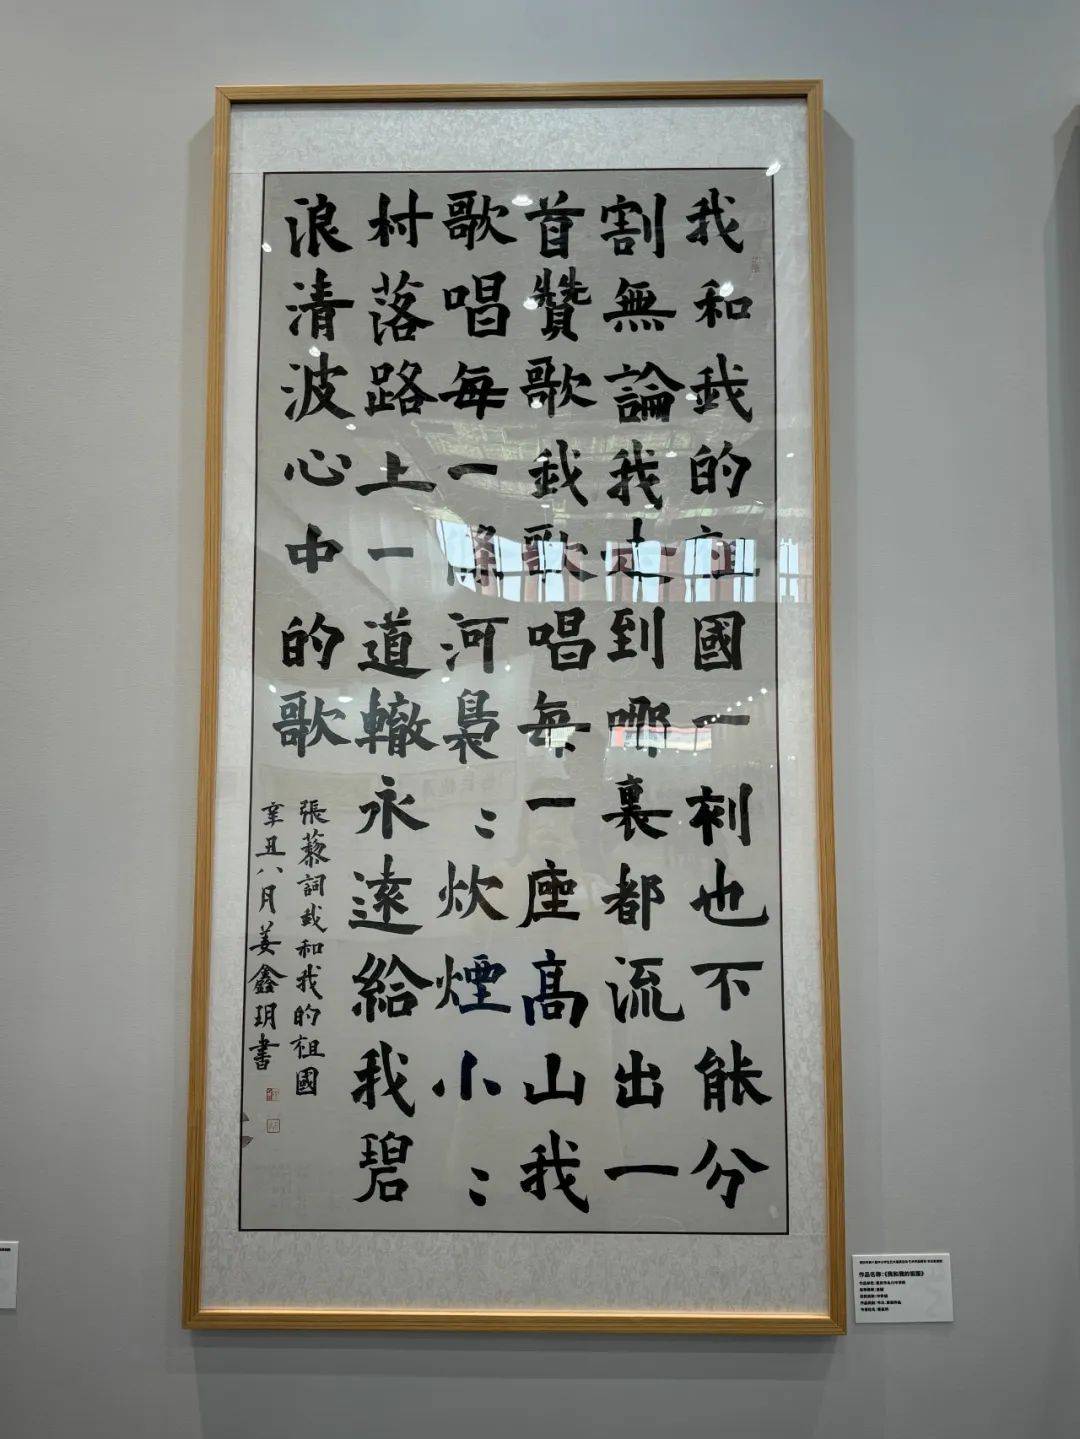 我和我的祖國一刻也不能分
割無論我走到哪裏都流出一
首贊歌我歌唱每一座高山我
歌唱每一條河裊〻炊煙小〻
村落路上一道轍永遠給我碧
浪清波心中的歌
張藜詞我和我的祖國
辛丑八月姜鑫玥書
作品名称:《我和我的祖国》